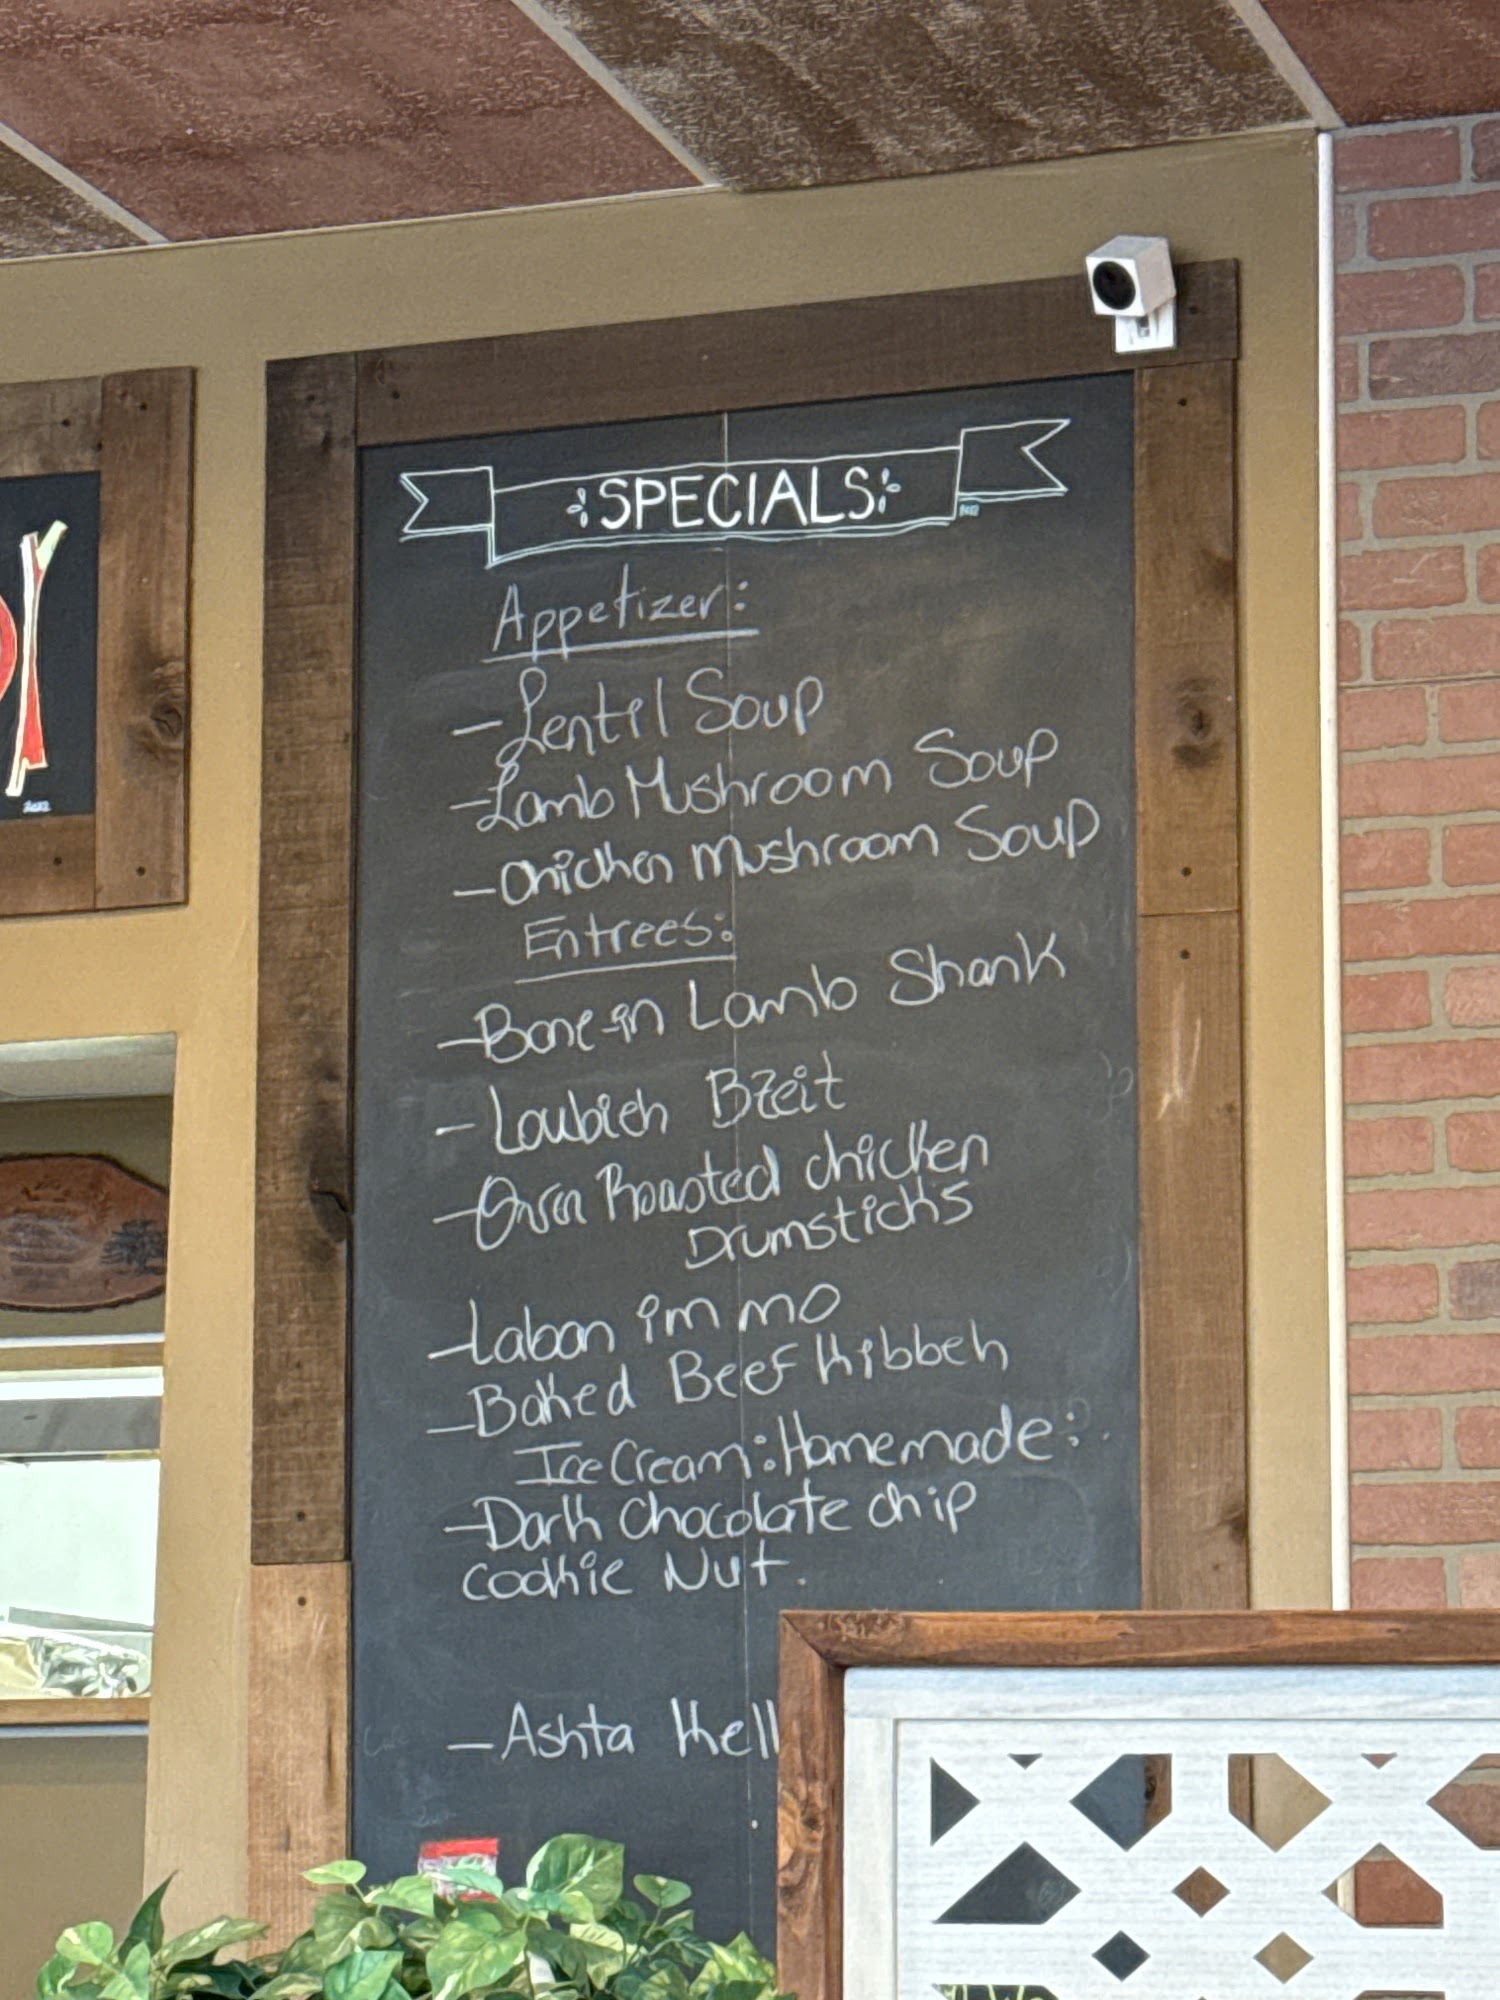 SPECIALS
Appetizer:
- Lentil Soup
- Lamb Mushroom Soup
- Chicken Mushroom Soup
Entrees:
- Bone-in Lamb Shank
- Loubieh Bzeit
- Oven Roasted chicken
Drumsticks
- Laban immo
- Baked Beef Kibbeh
Ice Cream: Homemade:
- Dark Chocolate chip
Cookie Nut.
- Ashta Kell
2022